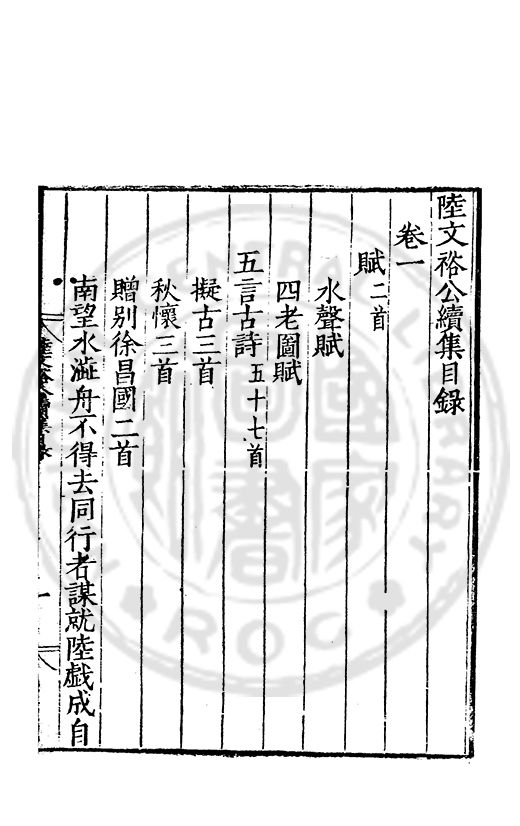 陸文裕公續集目録
卷一
賦二首
水聲賦
四老圖賦
五言古詩五十七首
擬古三首
秋懷三首
贈别徐昌國二首
南望水澁舟不得去同行者謀就陸戯成自
陸文裕公續集目録
一